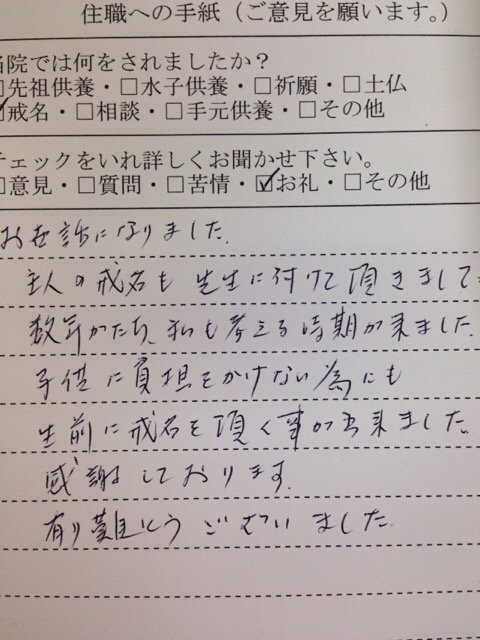 住職への手紙（ご意見を願います。）
院では何をされましたか？
□先祖供養・□水子供養・□祈願・□土仏
戒名・□相談・□手元供養・□その他
チェックをいれ詳しくお聞かせ下さい。
□意見・□質問・□苦情・☑お礼・□その他
お世話になりました。
主人の戒名も先生に付けて頂きまして
数年がたち、私も考える時期が来ました
子供に負担をかけない為にも
生前に戒名を頂く事が出来ました
感謝しております。
有り難とうございました